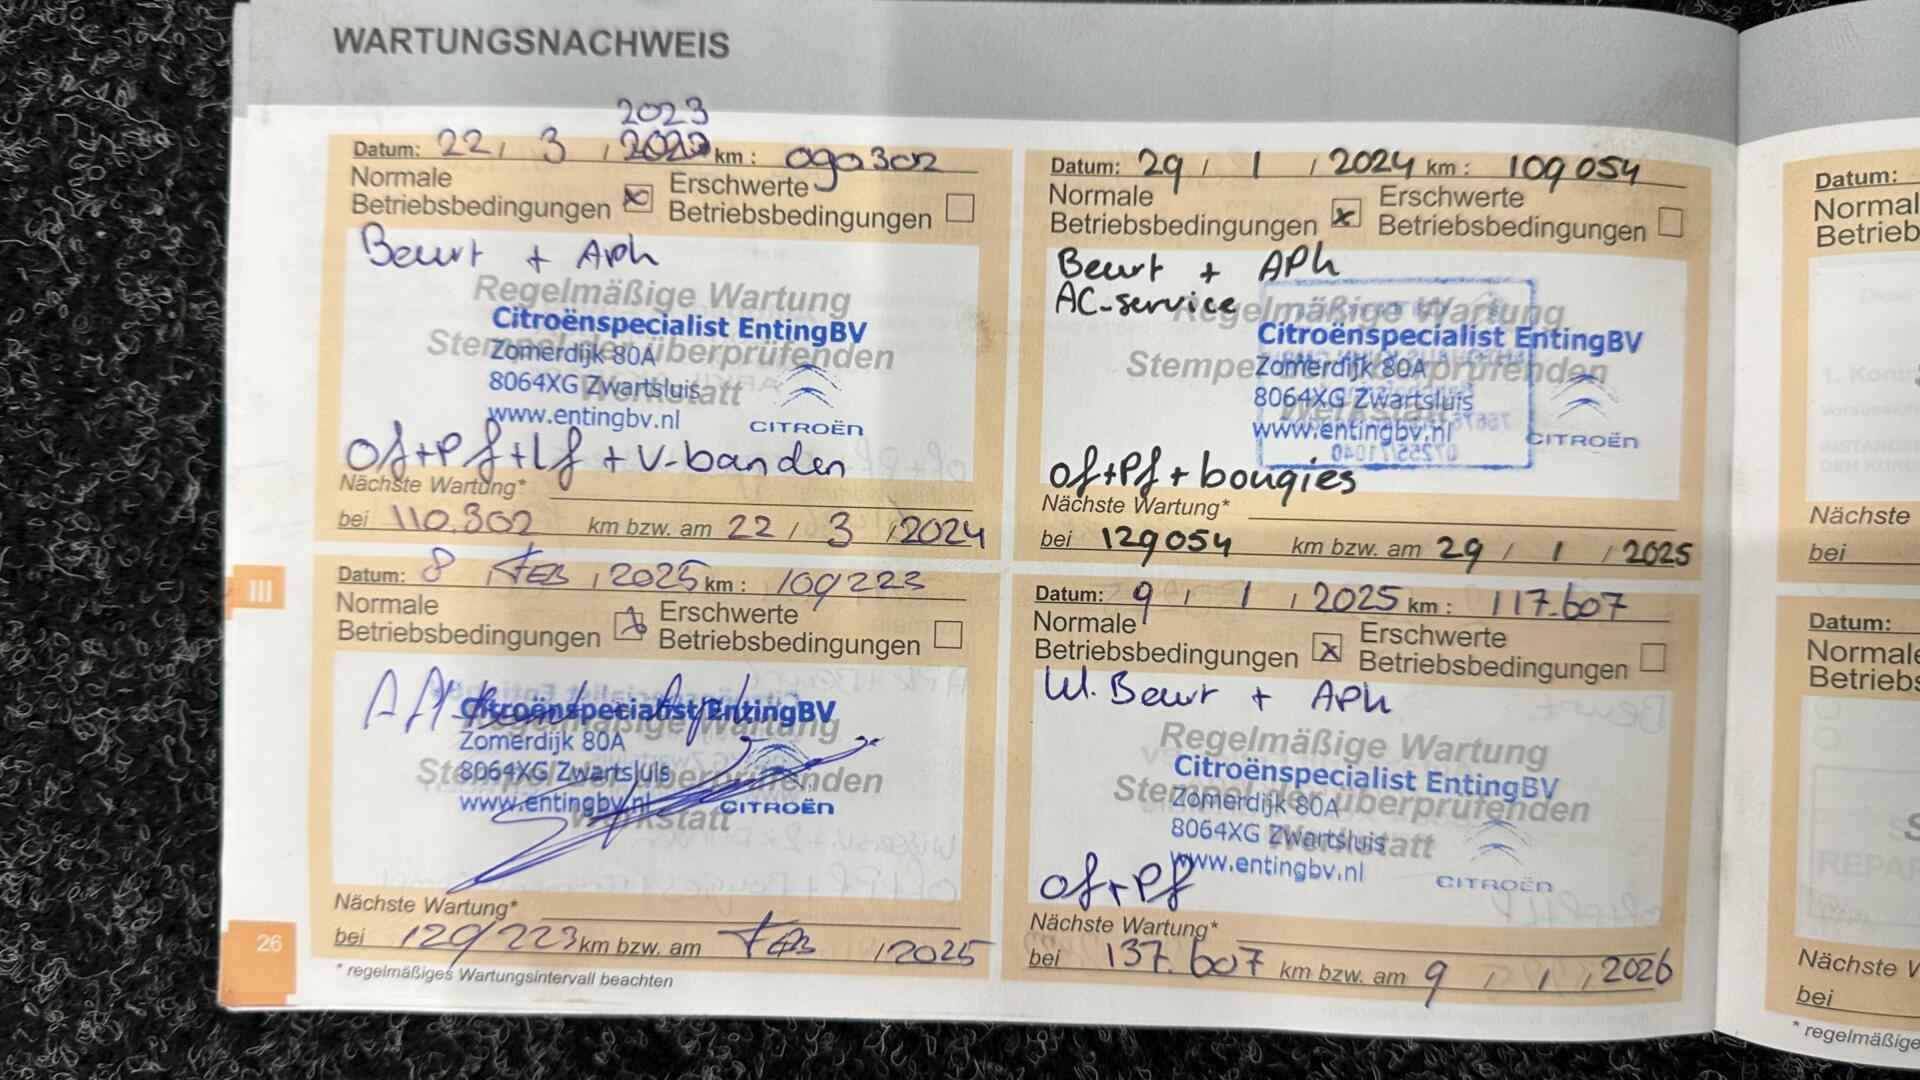 WARTUNGSNACHWEIS
2023
Datum: 22 / 3 / 2023 km : 090302
Normale Betriebsbedingungen x Erschwerte Betriebsbedingungen
Beurt + Aph
Regelmäßige Wartung
Stempel der überprüfenden
Werkstatt
Citroënspecialist EntingBV
Zomerdijk 80A
8064XG Zwartsluis
www.entingbv.nl
CITROËN
Of+Pf+Lf + V-banden
Nächste Wartung*
bei 110.302 km bzw. am 22 / 3 / 2024
Datum: 29 / 1 / 2024 km : 109054
Normale Betriebsbedingungen x Erschwerte Betriebsbedingungen
Beurt + APh
AC-service
Regelmäßige Wartung
Stempel der überprüfenden
Werkstatt
Citroënspecialist EntingBV
Zomerdijk 80A
8064XG Zwartsluis
www.entingbv.nl
CITROËN
Of+Pf + bougies
Nächste Wartung*
bei 129054 km bzw. am 29 / 1 / 2025
III
Datum: 8 / FEB / 2025 km : 109223
Normale Betriebsbedingungen x Erschwerte Betriebsbedingungen
Regelmäßige Wartung
Stempel der überprüfenden
Werkstatt
Citroënspecialist EntingBV
Zomerdijk 80A
8064XG Zwartsluis
www.entingbv.nl
CITROËN
Nächste Wartung*
bei 129223 km bzw. am FEB / 2025
* regelmäßiges Wartungsintervall beachten
26
Datum: 9 / 1 / 2025 km : 117.607
Normale Betriebsbedingungen x Erschwerte Betriebsbedingungen
Kl. Beurt + APh
Regelmäßige Wartung
Stempel der überprüfenden
Werkstatt
Citroënspecialist EntingBV
Zomerdijk 80A
8064XG Zwartsluis
www.entingbv.nl
CITROËN
Of+Pf
Nächste Wartung*
bei 137.607 km bzw. am 9 / 1 / 2026
Datum:
Normal
Betrieb
Nächste
bei
Datum:
Normale
Betriebs
REPAR
Nächste W
bei
* regelmäßige